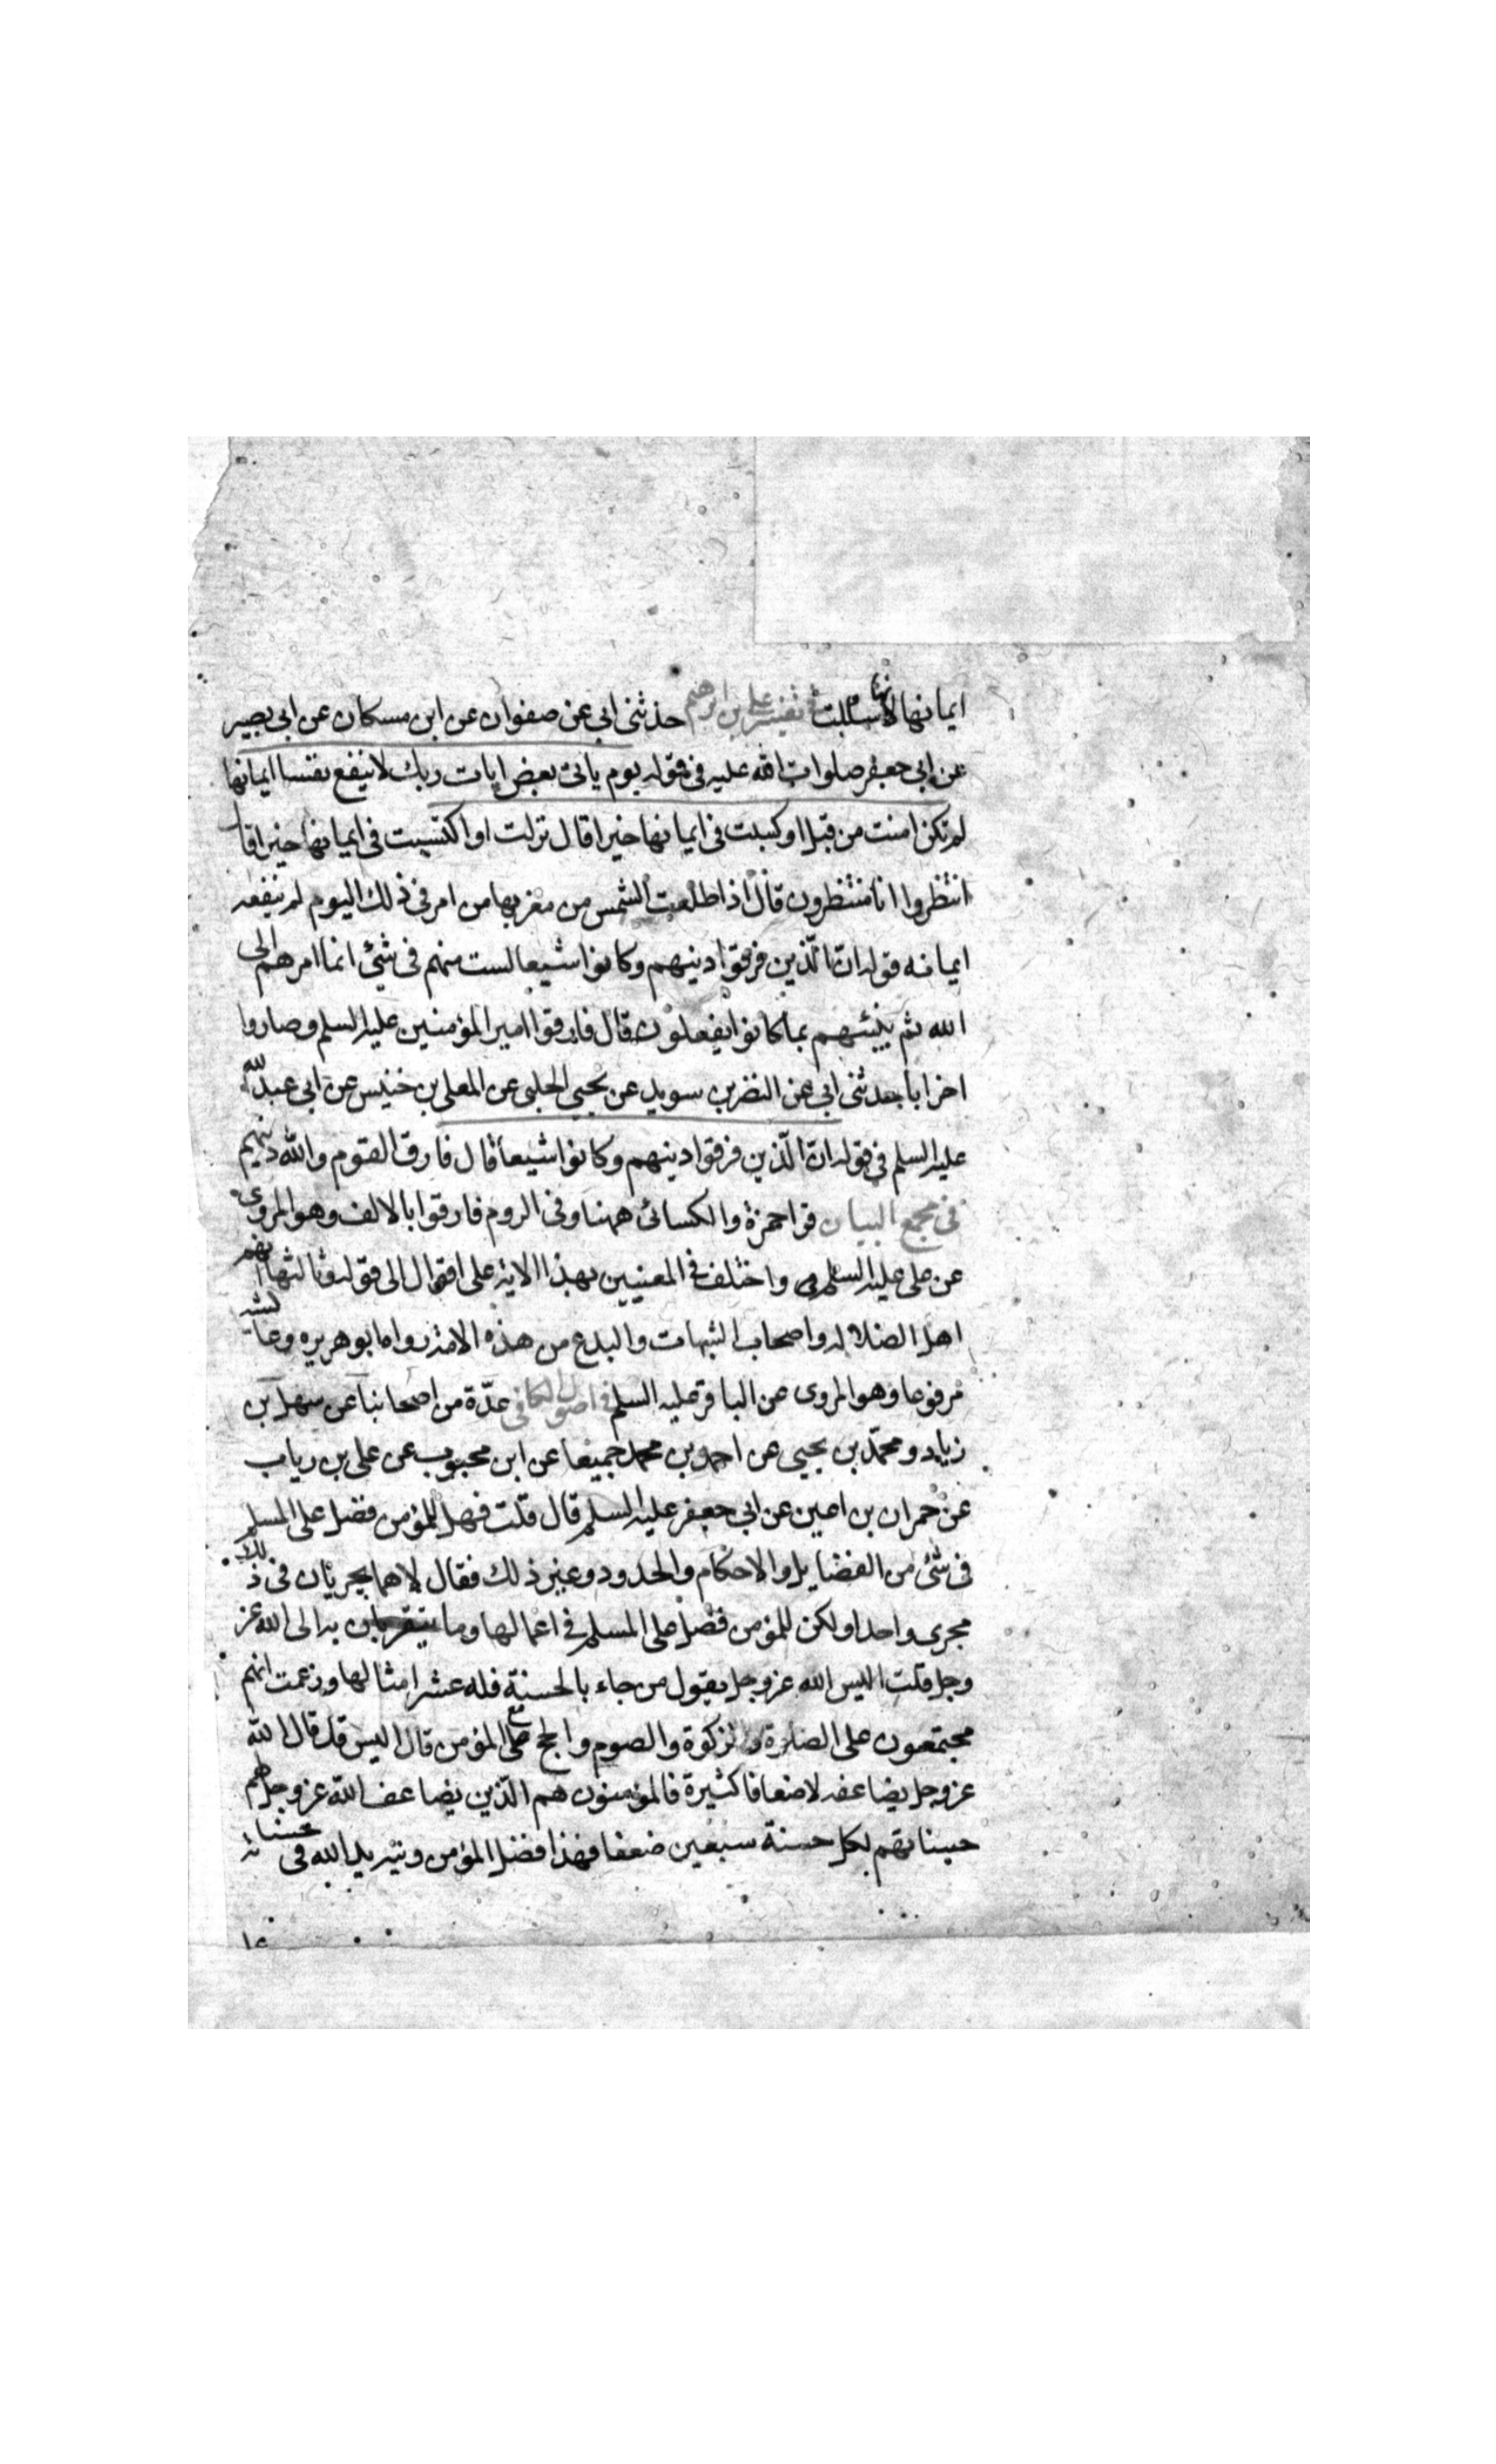 ايمانها لانها سلبت في تفسير علي بن ابرهيم حدثني ابي عن صفوان عن ابن مسكان عن ابي بصير
عن ابي جعفر صلوات الله عليه في قوله يوم ياتي بعض ايات ربك لا ينفع نفسا ايمانها
لم تكن امنت من قبل او كسبت في ايمانها خيرا قال نزلت او اكتسبت في ايمانها خيرا قل
انتظروا انا منتظرون قال اذا طلعت الشمس من مغربها من امر في ذلك اليوم لم ينفعه
ايمانه قوله انّ الّذين فرقوا دينهم وكانوا شيعا لست منهم في شئ انما امرهم الى
الله ثم ينبئهم بما كانوا يفعلون قال فارقوا امير المؤمنين عليه السلم وصاروا
احزابا حدثني ابي عن النضر بن سويد عن يحيى الحلبي عن المعلى بن خنيس عن ابي عبد الله
عليه السلم في قوله انّ الّذين فرقوا دينهم وكانوا شيعا قال فارق القوم والله دينهم
في مجمع البيان قرا حمزة والكسائى ههنا وفي الروم فارقوا بالالف وهو المروى
عن على عليه السلم واختلف في المعنيين بهذه الاية على اقوال الى قوله وثالثها انهم
اهل الضلالة واصحاب الشبهات والبدع من هذه الامة رواه ابو هريره وعايشة
مرفوعا وهو المروى عن الباقر عليه السلم في اصول الكافي عدّة من اصحابنا عن سهل بن
زياد ومحمّد بن يحيى عن احمد بن محمد جميعا عن ابن محبوب عن على بن رياب
عن حمران بن اعين عن ابي جعفر عليه السلم قال قلت فهل للمؤمن فضل على المسلم
في شئ من الفضايل والاحكام والحدود وغير ذلك فقال لا هما يجريان في ذلك
مجرى واحدا ولكن للمؤمن فضل على المسلم في اعمالها وما يتقربان به الى الله عز
وجل قلت اليس الله عز وجل يقول من جاء بالحسنة فله عشر امثالها وزعمت انهم
مجتمعون على الصلوة والزكوة والصوم والحج مع المؤمن قال اليس قد قال الله
عز وجل يضاعفه لاضعافا كثيرة فالمؤمنون هم الّذين يضاعف الله عز وجل لهم
حسناتهم لكل حسنة سبعين ضعفا فهذا فضل المؤمن ويزيد الله في حسناته